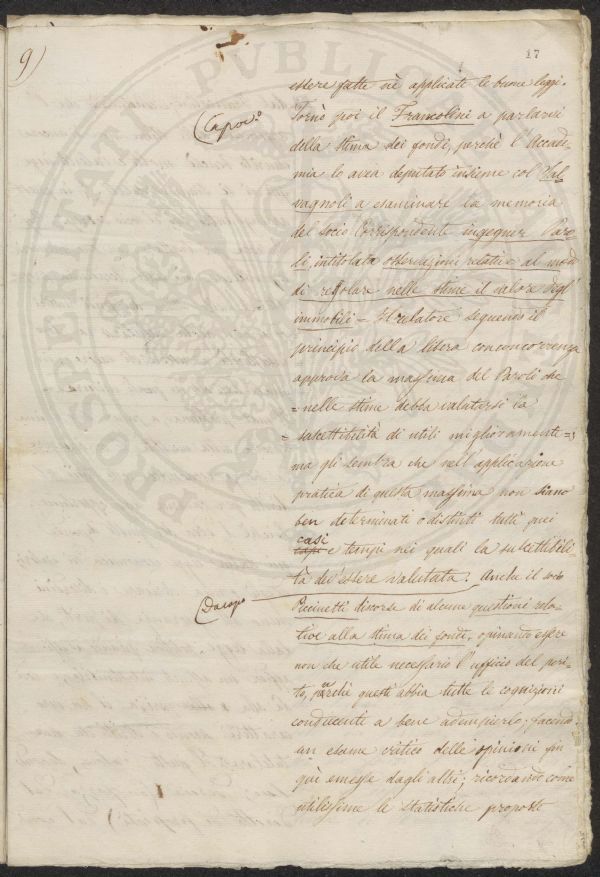 9)
17
essere fatte nè applicate le buone leggi.
Capov.o
Tornò poi il Francolini a parlarvi
della stima dei fondi, perchè l'Accade-
mia lo avea deputato insieme col Sal-
vagnoli a esaminare la memoria
del socio Corrispondente ingegner Paro-
li, intitolata osservazioni relative al modo
di regolare nelle stime il valore degl'
immobili = Il relatore seguendo il
principio della libera conconcorrenza
approva la massima del Paroli che
= nelle stime debba valutarsi la
= suscettibilità di utili miglioramenti =;
ma gli sembra che nell'applicazione
pratica di questa massima non siano
ben determinati e distinti tutti quei
casi
e tempi nei quali la suscettibili-
tà dev'essere valutata. Anche il socio
Dacapo
Piccinetti discorse di alcune questioni rela-
tive alla stima dei fondi, opinando essere
non che utile necessario l'ufficio del peri-
to, purchè questi abbia tutte le cognizioni
conducenti a bene adempierlo; facendo
un esame critico delle opinioni fin
quì emesse dagli altri; ricordando come
utilissime le statistiche proposte
PROSPERITATI PUBLICAE